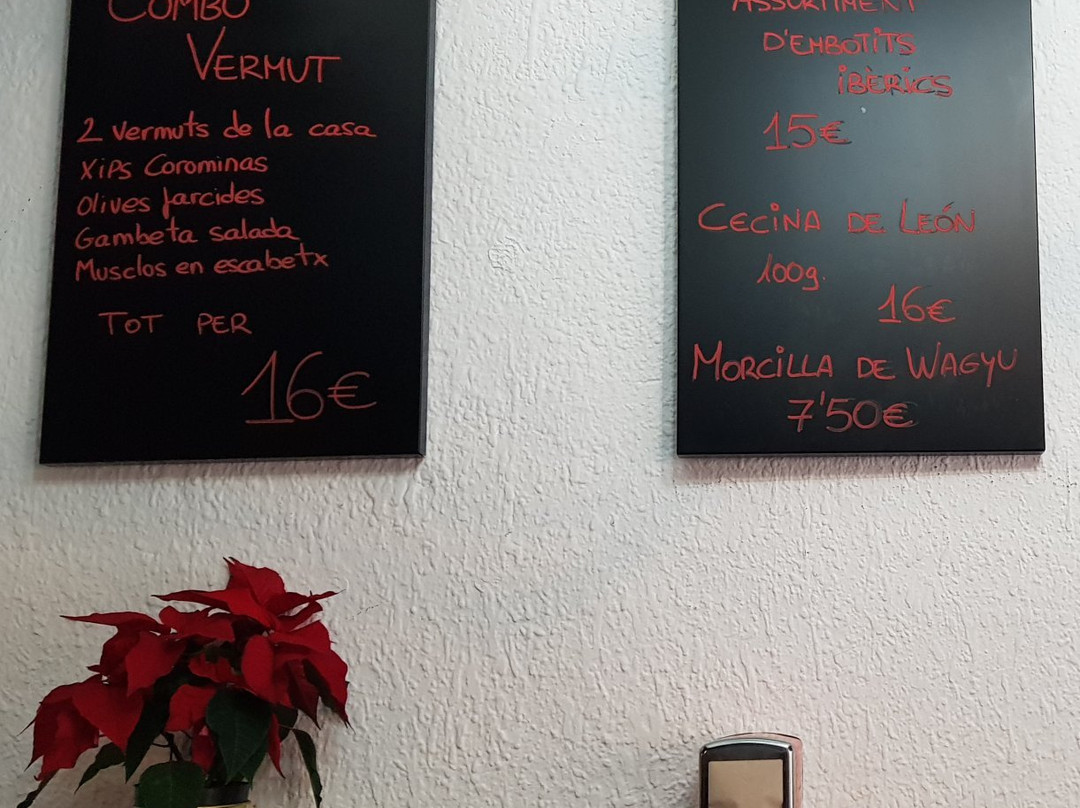 COMBO
VERMUT
2 vermuts de la casa
Xips Corominas
Olives farcides
Gambeta salada
Musclos en escabetx
TOT PER
16€
ASSORTIMENT
D'EMBOTITS
IBÈRICS
15€
CECINA DE LEÓN
100g.
16€
MORCILLA DE WAGYU
7'50€